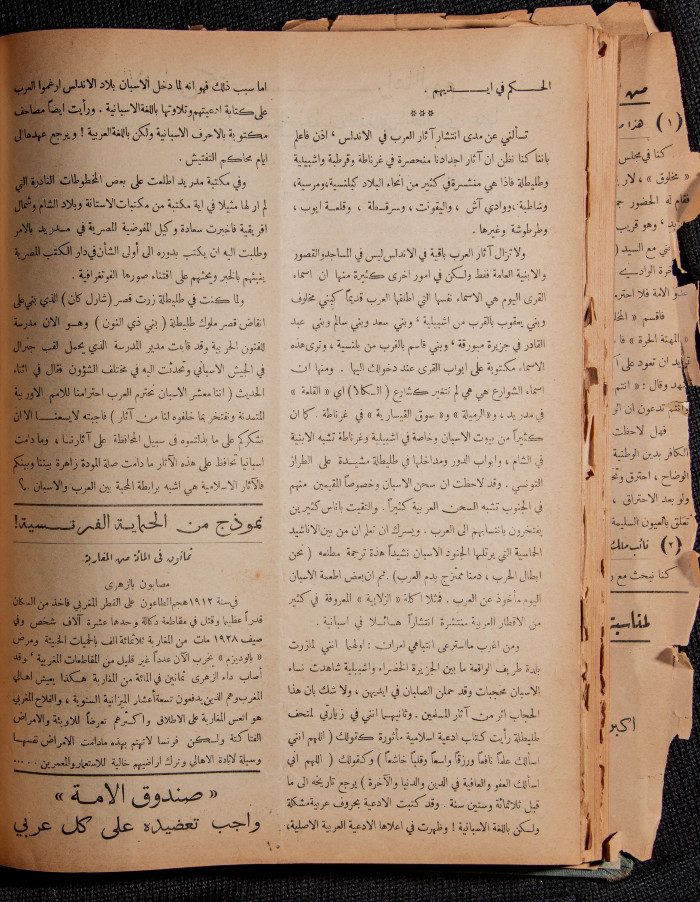 الحكم في ايديهم .
***
تسألني عن مدى انتشار آثار العرب في الاندلس ، اذن فاعلم
باننا كنا نظن ان آثار اجدادنا منحصرة في غرناطة وقرطبة واشبيلية
وطليطلة فاذا هي منتشرة في كثير من انحاء البلاد كبلنسية ، ومرسية ،
وشاطبة ، ووادي آش ، واليقونت ، وسرقسطة ، وقلعة ايوب ،
وطرطوشة وغيرها .
ولا تزال آثار العرب باقية في الاندلس ليس في المساجد والقصور
والابنية العامة فقط ولكن في امور اخرى كثيرة منها ان اسماء
القرى اليوم هي الاسماء نفسها التي اطلقها العرب قديماً كبني مخلوف
وبني يعقوب بالقرب من اشبيلية ، وبني سعد وبني سالم وبني عبد
القادر في جزيرة ميورقة ، وبني قاسم بالقرب من بلنسية ، وترى هذه
الاسماء مكتوبة على ابواب القرى عند دخولك اليها . ومنها ان
اسماء الشوارع هي هي لم تتغير كشارع ( الكالا ) اي « القلعة »
في مدريد ، و« الرميلة » و« سوق القيسارية » في غرناطة . كما ان
كثيراً من بيوت الاسبان وخاصة في اشبيلية وغرناطة تشبه الابنية
في الشام ، وابواب الدور ومداخلها في طليطلة مشيدة على الطراز
التونسي . وقد لاحظت ان سحن الاسبان وخصوصاً المقيمين منهم
في الجنوب تشبه السحن العربية كثيراً . والتقيت باناس كثيرين
يفتخرون بانتسابهم الى العرب . ويسرك ان تعلم ان من بين الاناشيد
الحماسية التي يرتلها الجنود الاسبان نشيداً هذه ترجمة مطلعه ( نحن
ابطال الحرب ، دمنا ممتزج بدم العرب ) . ثم ان بعض اطعمة الاسبان
اليوم مأخوذ عن العرب . فمثلا اكلة « الزلابية » المعروفة في كثير
من الاقطار العربية منتشرة انتشاراً هائلا في اسبانية .
ومن اغرب ما استرعى انتباهي امران : اولهما انني لما زرت
بلدة طريف الواقعة ما بين الجزيرة الخضراء واشبيلية شاهدت نساء
الاسبان محجبات وقد حملن الصلبان في ايديهن ، ولا شك بان هذا
الحجاب اثر من آثار المسلمين . وثانيهما انني في زيارتي لمتحف
طليطلة رأيت كتاب ادعية اسلامية مأثورة كقولك ( اللهم انني
اسألك علماً نافعاً ورزقاً واسعاً وقلباً خاشعاً ) وكقولك ( اللهم اني
اسألك العفو والعافية في الدين والدنيا والآخرة ) يرجع تاريخه الى ما
قبل ثلاثمائة وستين سنة . وقد كتبت الادعية بحروف عربية مشكلة
ولكن باللغة الاسبانية ! وظهرت في اعلاها الادعية العربية الاصلية ،
اما سبب ذلك فهو انه لما دخل الاسبان بلاد الاندلس ارغموا العرب
على كتابة ادعيتهم وتلاوتها باللغة الاسبانية . ورأيت ايضاً مصاحف
مكتوبة بالاحرف الاسبانية ولكن باللغة العربية ! ويرجع عهدها الى
ايام محاكم التفتيش .
وفي مكتبة مدريد اطلعت على بعض المخطوطات النادرة التي
لم ار لها مثيلا في اية مكتبة من مكتبات الاستانة وبلاد الشام وشمال
افريقية فاخبرت سعادة وكيل المفوضية المصرية في مدريد بالامر
وطلبت اليه ان يكتب بدوره الى اولى الشأن في دار الكتب المصرية
ينبئهم بالخبر ويحثهم على اقتناء صورها الفوتغرافية .
ولما كنت في طليطلة زرت قصر ( شارل كان ) الذي بني على
انقاض قصر ملوك طليطلة ( بني ذي النون ) وهو الان مدرسة
للفنون الحربية وقد قابت مدير المدرسة الذي يحمل لقب جنرال
في الجيش الاسباني وتحدثت اليه في مختلف الشؤون فقال في اثناء
الحديث ( اننا معشر الاسبان نحترم العرب احترامنا للامم الاوربية
المتمدنة ونفتخر بما خلفوه لنا من آثار ) فاجبته لا يسعنا الا ان
نشكركم على ما بذلتموه في سبيل المحافظة على آثارنا ، وما دامت
اسبانيا تحافظ على هذه الآثار ما دامت صلة المودة زاهرة بيننا وبينكم
فالآثار الاسلامية هي اشبه برابطة المحبة بين العرب والاسبان .
نموذج من الحماية الفرنسية!
ثمانون في المائة من المغاربة
مصابون بالزهري
في سنة ١٩١٢ هجم الطاعون على القطر المغربي فاخذ من السكان
قدراً عظيما وقتل في مقاطعة دكالة وحدها عشرة آلاف شخص وفي
صيف ١٩٢٨ مات من المغاربة ثلاثمائة الف بالحميات الخبيثة ومرض
« بالوديزم » يخرب الآن عدداً غير قليل من المقاطعات المغربية ، وقد
اصاب داء الزهري ثمانين في المائة من المغاربة هكذا يعيش اهالي
المغرب وهم الذين يدفعون تسعة أعشار الميزانية السنوية ، والفلاح المغربي
هو اتعس المغاربة على الاطلاق واكثرهم تعرضاً للاوبئة والامراض
الفتاكة ولكن فرنسا لا تهتم بهذه ما دامت الامراض نفسها
وسيلة لابادة الاهالي وترك اراضيهم خالية للاستعمار والمعمرين .....
« صندوق الامة »
واجب تعضيده على كل عربي
١٠
من
( ١ ) هذا
كنا في مجلس
« مخلوق » ،
فقام له الحضور
وهو قريب
مع السيد (
الامة فلا
فاقسم «
« المهنة الحرة »
ان تعود على
وقال : « انتم
تدعون ان
فهل لاحظت
الكافر بدين الوطنية
الوضاح ، احترق
ولو بعد الاحتراق ،
تعلق بالعيون السليمة
( ٢ ) نائب ملك
كنا نبحث مع
لمناسبة
اكبر